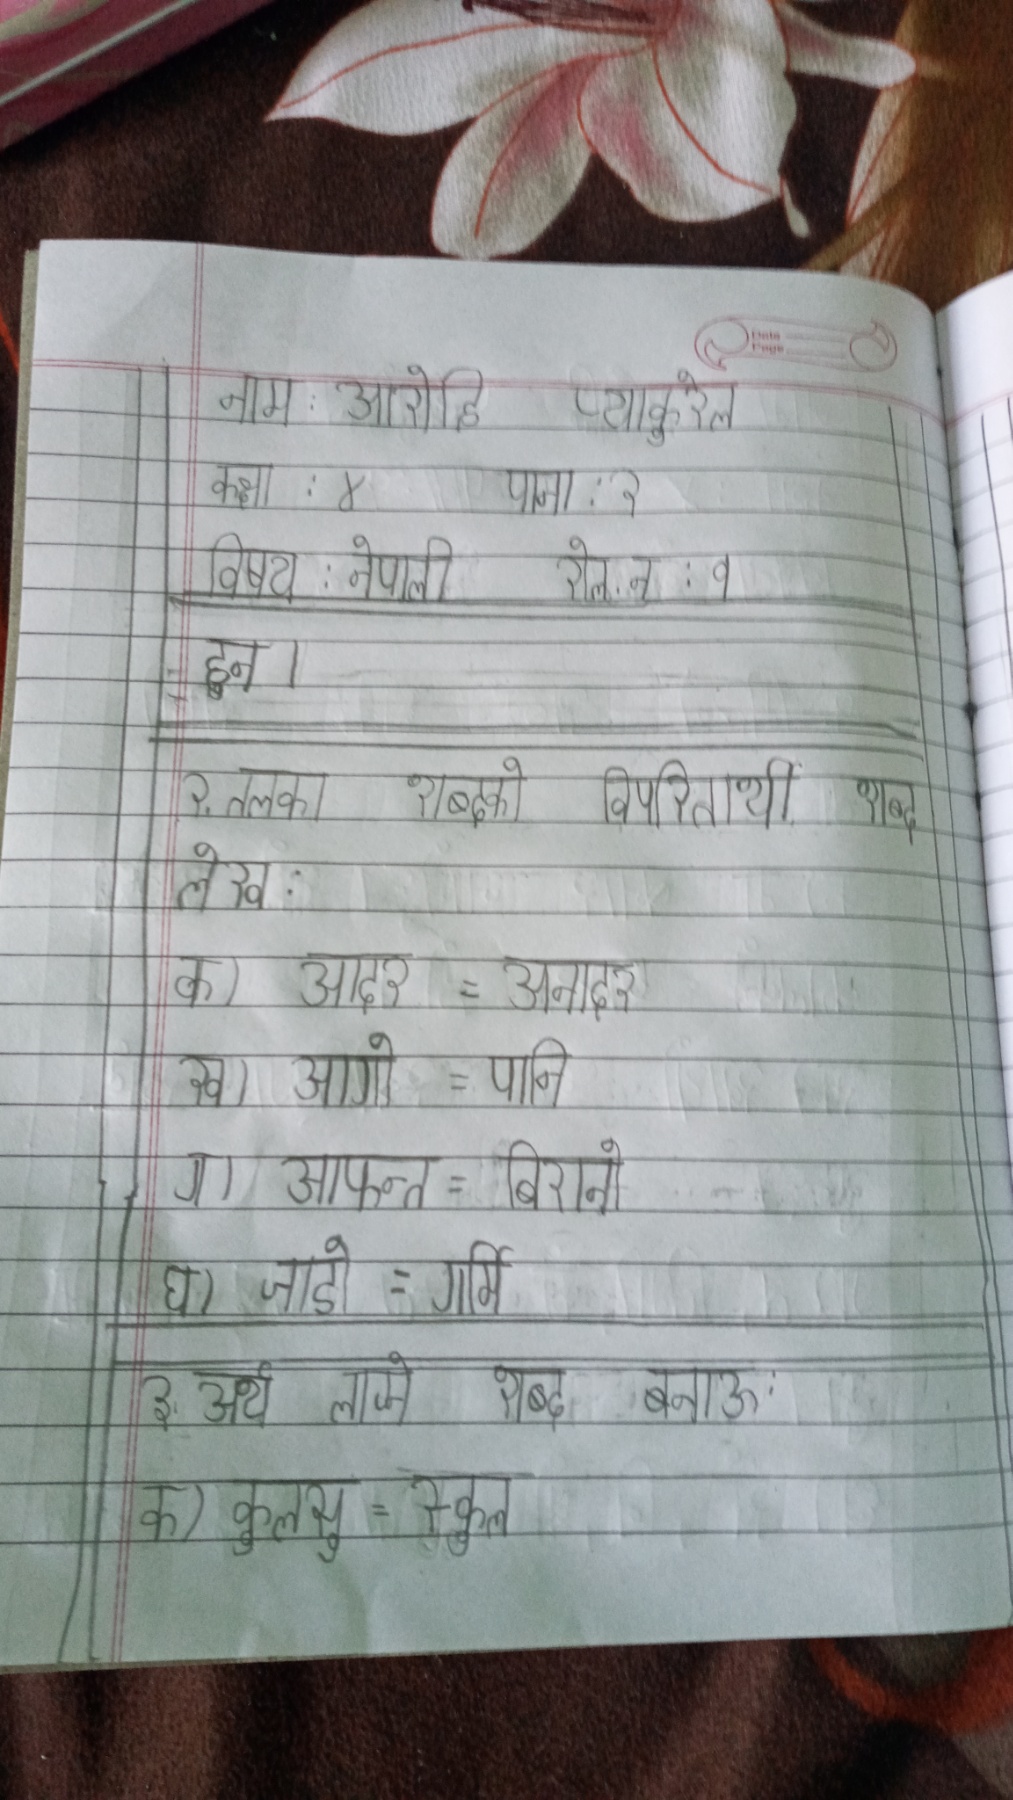 Date
Page
नाम : आरोहि प्याकुरेल
कक्षा : ४ पाना : २
विषय : नेपाली रोल.न : १
हुन ।
२. तलका शब्दको विपरितार्थी शब्द
लेख :
क) आदर = अनादर
ख) आगो = पानि
ग) आफन्त = बिरानो
घ) जाडो = गर्मि
३. अर्थ लाग्ने शब्द बनाऊ :
क) कुलसु = स्कुल